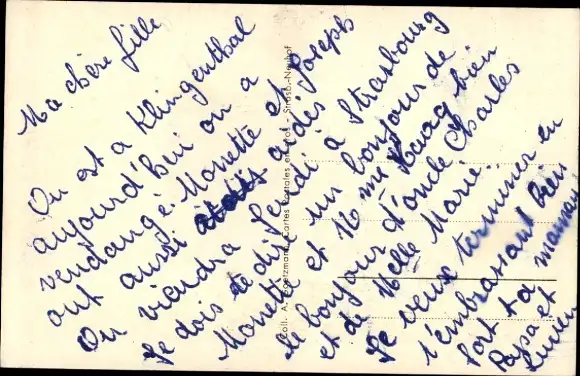 Ma chère fille
On est a Klingenthal
aujourd'hui on a
vendangé. Monette et Joseph
ont aussi aidés
On viendra lundi a Strasbourg
Je dois te dire un bonjour de
Monette et M me bien
le bonjour d'oncle Charles
et de Melle Marie.
Je veux terminer en
t'embrassant bien
fort ta maman
Papa et
Lucien
Coll. A. Cartes Postales en - Strasb.-Neuhof